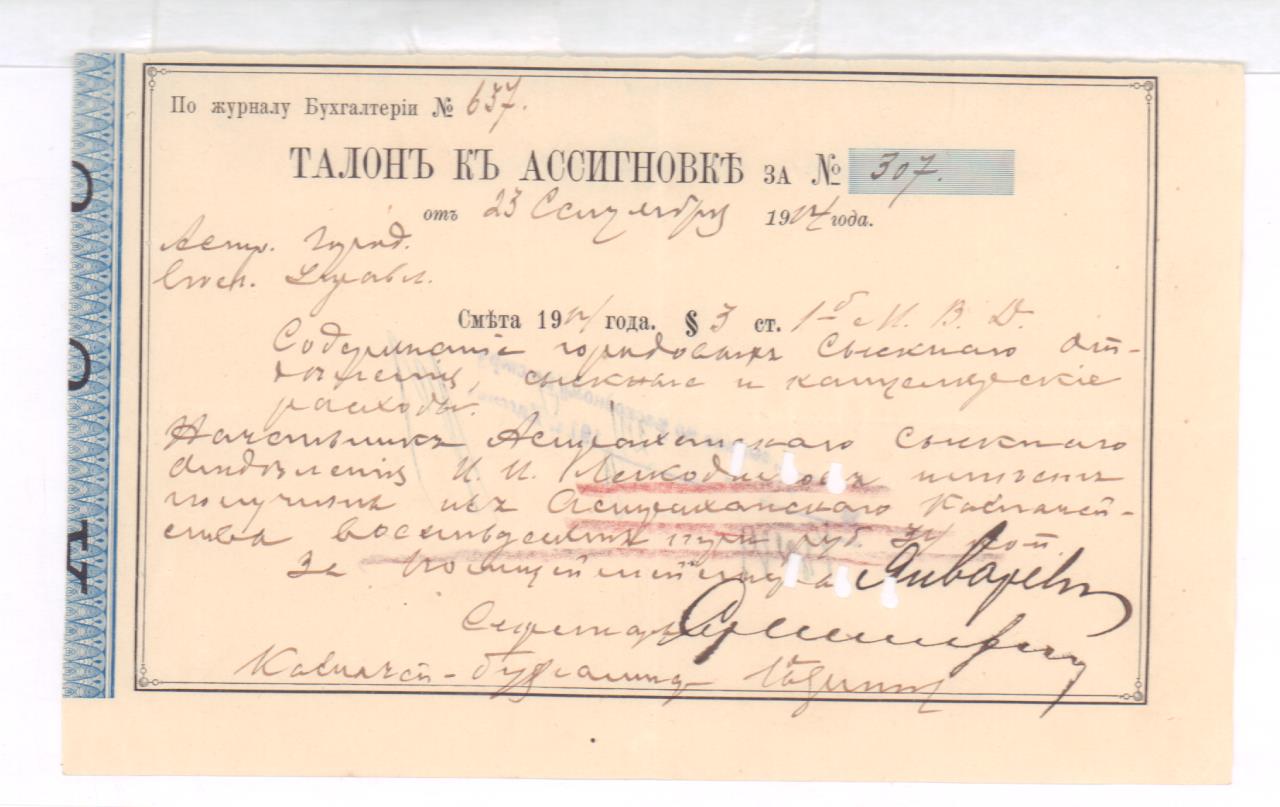 По журналу Бухгалтеріи № 637.
ТАЛОНЪ КЪ АССИГНОВКѢ ЗА № 307.
отъ 23 Сентября 1914 года.
Астр. Город.
Управл.
Смѣта 1914 года. § 3 ст. 1 б М. В. Д.
Содержаніе городовыхъ сыскного от-
дѣленія, сыскные и канцелярскіе
расходы.
Начальникъ Астраханскаго сыскного
отдѣленія И. И. имѣетъ
получить изъ Астраханскаго Казначей-
ства восемьдесятъ три руб. 34 коп.
За Январевъ
Секретарь
Казначей-бухгалтеръ